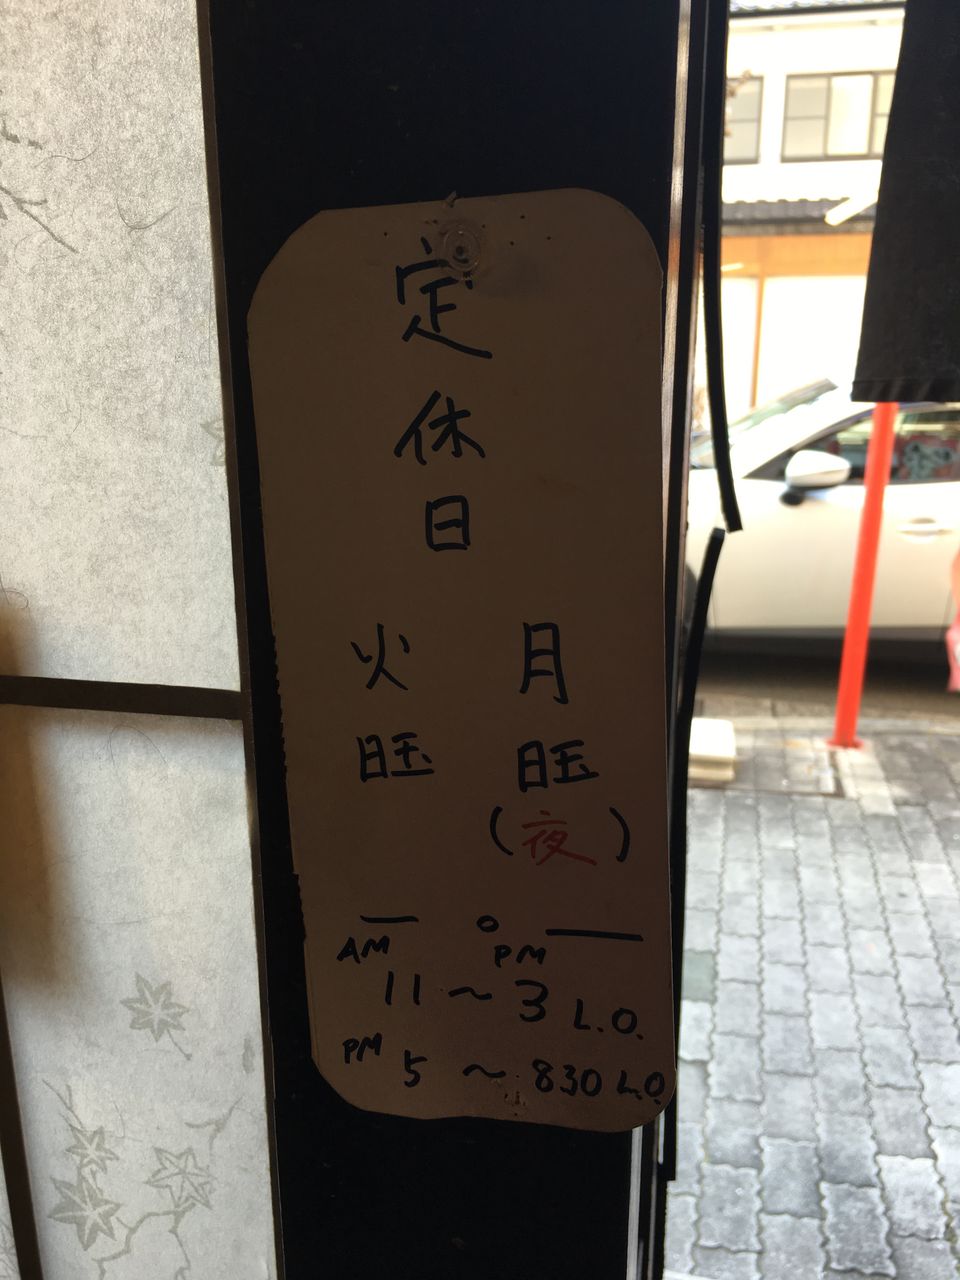 定休日
月旺(夜)
火旺
AM 11 〜 PM 3 L.O.
PM 5 〜 830 L.O.